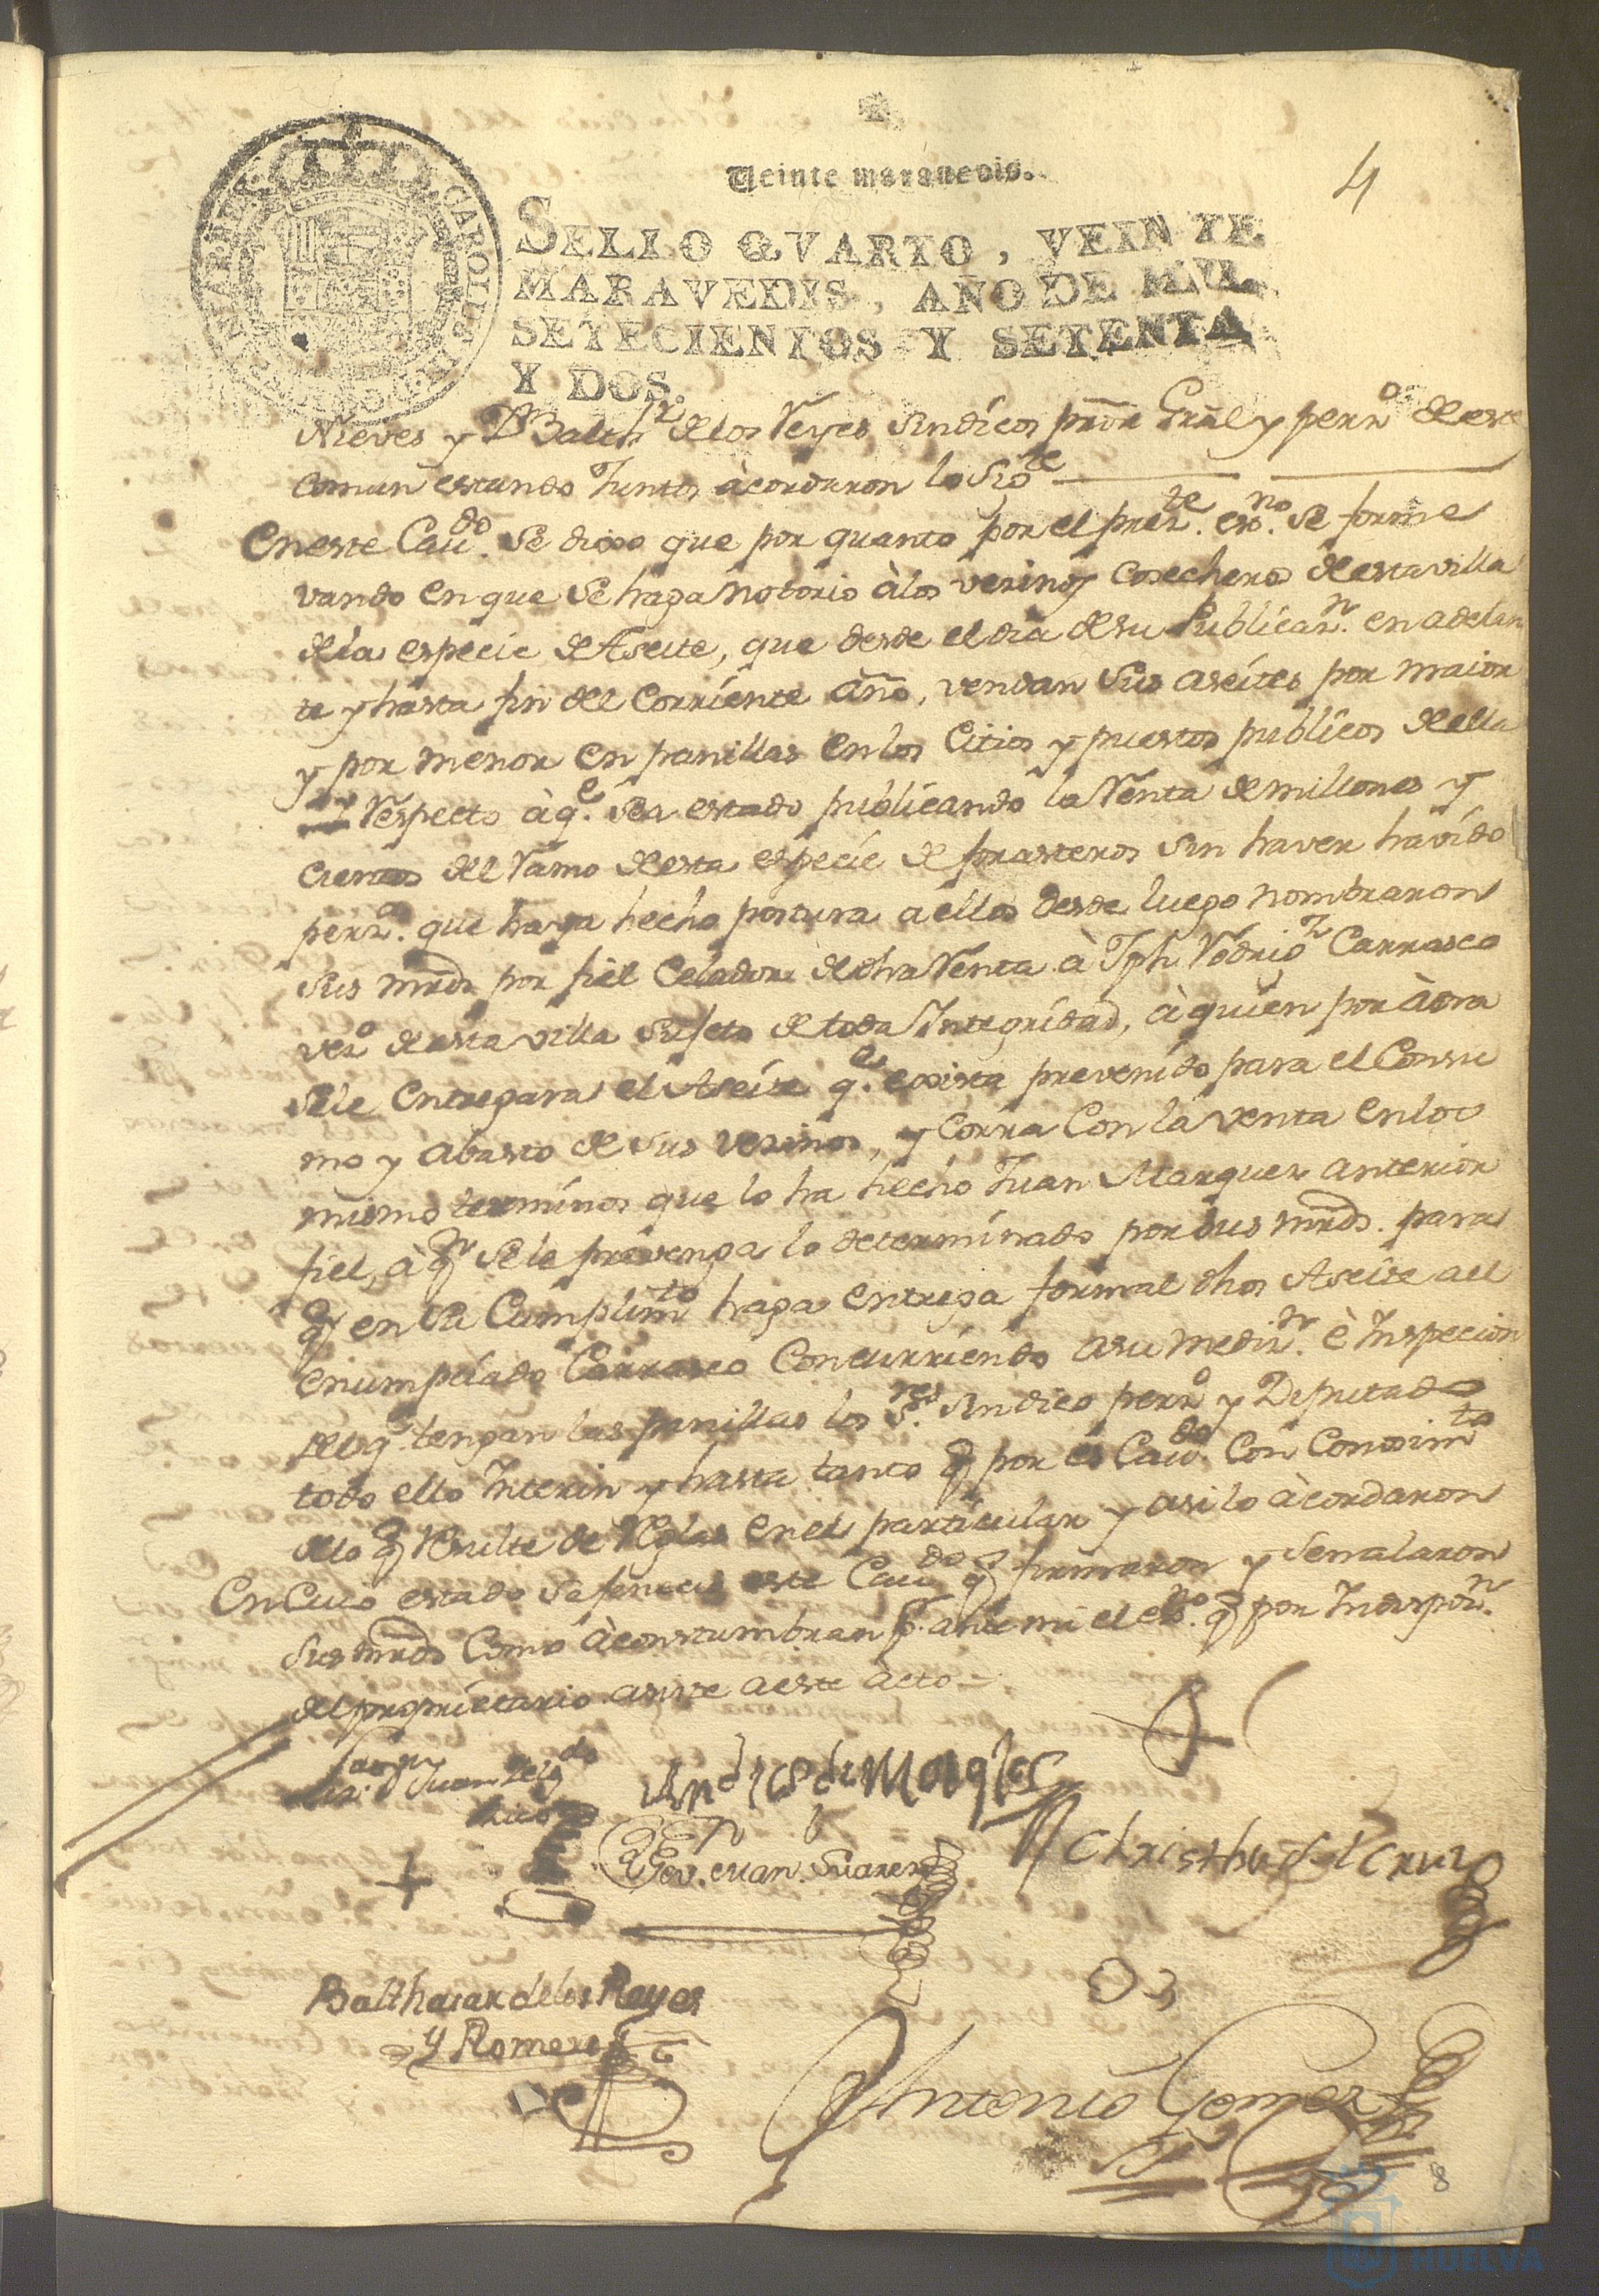 Veinte maravedis.
4
SELLO QVARTO, VEINTE
MARAVEDIS, AÑO DE MIL
SETECIENTOS Y SETENTA
Y DOS.
CAROLUS
Nieves y Dn Balthr. de los Reyes Sindicos prōr Grāl y persro de este
comun estando Juntos àcordaron lo Sigte
En este Cavdo. se dixo que por quanto por el preste. esno. se forme
vando en que se haga notorio àlos vezinos cosecheros de esta villa
de la especie de Aseite, que desde el dia de su Publicazn. en adelan
te y hasta fin del corriente año, vendan sus aseites por maior
y por menor en panillas en los Citios y puestos publicos de ella
y Respecto àqe. sea estado publicando la Renta de millones y
cientos del Ramo de esta especie de forasteros sin haver havido
persa. que haya hecho postura a ellos desde luego nombraron
sus mrds por fiel Celador de dha Renta à Jph Rodrigz Carrasco
vezo de esta villa sujeto de toda Integridad, à quien por àora
sele entregara el Aseite qe. exista prevenido para el Consu
mo y abasto de sus vezinos, y corra con la venta en los
mismos terminos que lo ha hecho Juan Marquez anterior
fiel, à qn sele prevenga lo determinado por sus mrds. para
q en su Cumplimto haga entrega formal dhos Aseite al
enumpciado Carrasco Concurriendo asu medizn. è Inspecion
delo q. tengan las panillas los Sres. Sindico persro y Diputados
todo ello Interin y hasta tanto q por este Cavdo. Con Conosimto
delo q Resulte se Reglas en el particular y asi lo àcordaron
En cuio estado se fenecio este Cavdo q firmaron y señalaron
sus mrds Como àcostumbran p. ante mi el esno. q por Indispozn.
del proprietario asiste a este àcto
Juan Delgdo
Andres de Moxgles
Gev. Man. Suarez
Christhval del Cruz
Balthasar de los Reyes
y Romero
Antonio Gomez
8
HUELVA